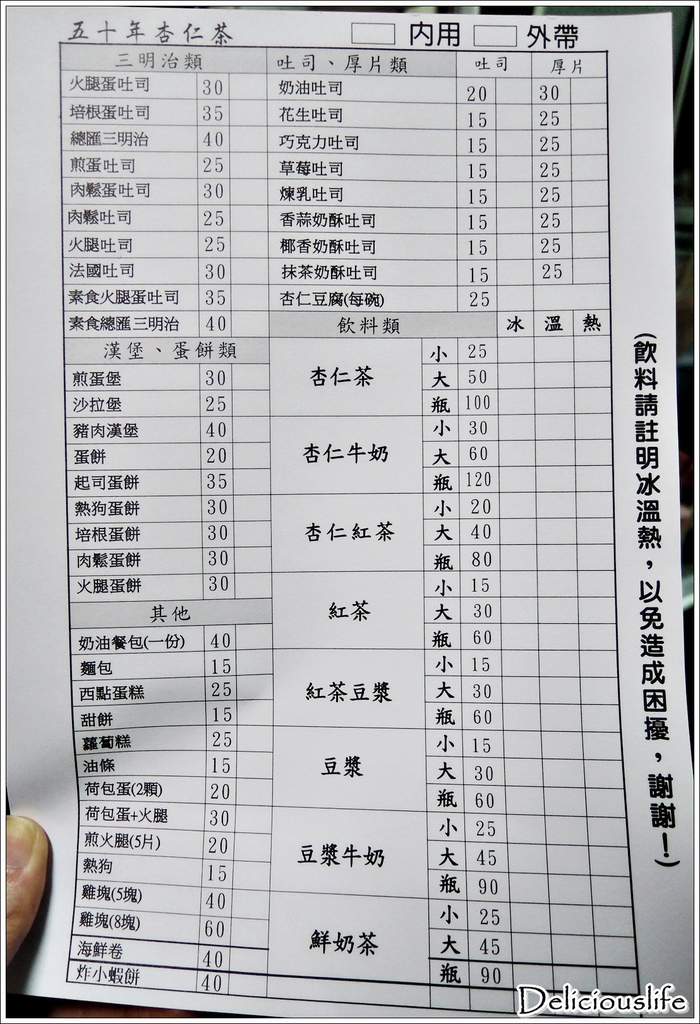 五十年杏仁茶 內用 外帶
三明治類
火腿蛋吐司 30
培根蛋吐司 35
總匯三明治 40
煎蛋吐司 25
肉鬆蛋吐司 30
肉鬆吐司 25
火腿吐司 25
法國吐司 30
素食火腿蛋吐司 35
素食總匯三明治 40
漢堡、蛋餅類
煎蛋堡 30
沙拉堡 25
豬肉漢堡 40
蛋餅 20
起司蛋餅 35
熱狗蛋餅 30
培根蛋餅 30
肉鬆蛋餅 30
火腿蛋餅 30
其他
奶油餐包(一份) 40
麵包 15
西點蛋糕 25
甜餅 15
蘿蔔糕 25
油條 15
荷包蛋(2顆) 20
荷包蛋+火腿 30
煎火腿(5片) 20
熱狗 15
雞塊(5塊) 40
雞塊(8塊) 60
海鮮卷 40
炸小蝦餅 40
吐司、厚片類 吐司 厚片
奶油吐司 20 30
花生吐司 15 25
巧克力吐司 15 25
草莓吐司 15 25
煉乳吐司 15 25
香蒜奶酥吐司 15 25
椰香奶酥吐司 15 25
抹茶奶酥吐司 15 25
杏仁豆腐(每碗) 25
飲料類 冰 溫 熱
杏仁茶
小 25
大 50
瓶 100
杏仁牛奶
小 30
大 60
瓶 120
杏仁紅茶
小 20
大 40
瓶 80
紅茶
小 15
大 30
瓶 60
紅茶豆漿
小 15
大 30
瓶 60
豆漿
小 15
大 30
瓶 60
豆漿牛奶
小 25
大 45
瓶 90
鮮奶茶
小 25
大 45
瓶 90
(飲料請註明冰溫熱，以免造成困擾，謝謝！)
Deliciouslife